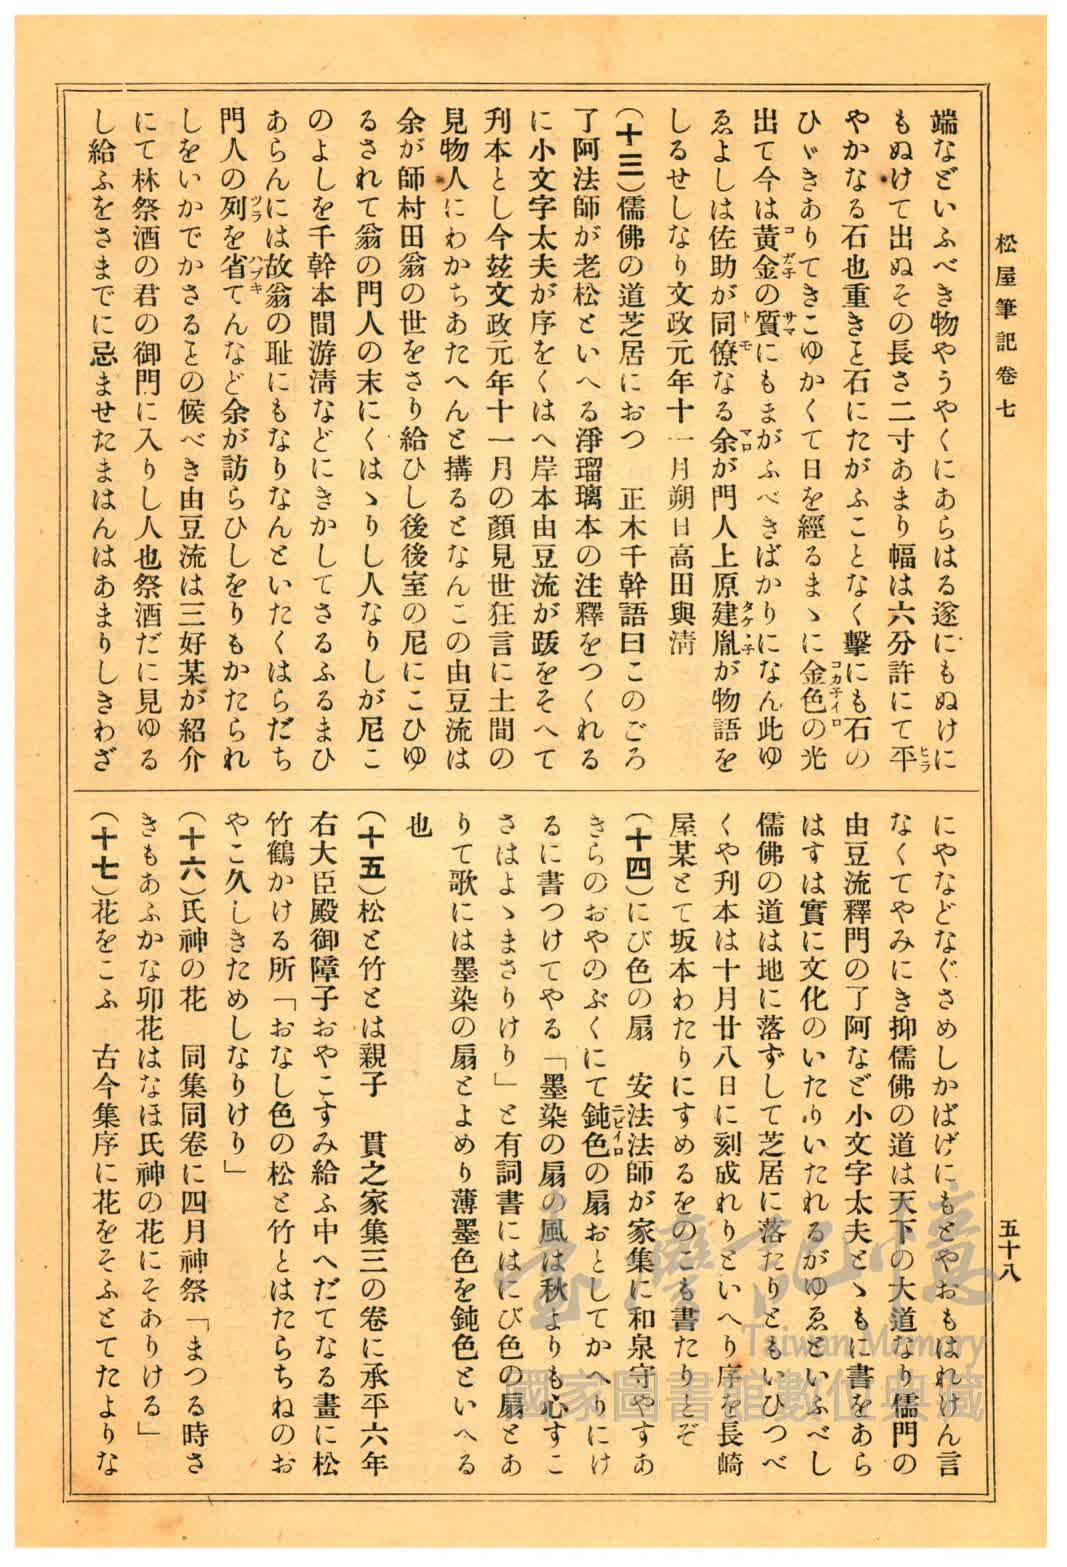 松屋筆記卷七
五十八
端などいふべき物やうやくにあらはる遂にもぬけに
もぬけて出ぬその長さ二寸あまり幅は六分許にて平
やかなる石也重きこと石にたがふことなく擊にも石の
ひゞきありてきこゆかくて日を經るまゝに金色の光
出て今は黃金の質にもまがふべきばかりになん此ゆ
ゑよしは佐助が同僚なる余が門人上原建胤が物語を
しるせしなり文政元年十一月朔日高田與淸
(十三)儒佛の道芝居におつ　正木千幹語曰このごろ
了阿法師が老松といへる淨瑠璃本の注釋をつくれる
に小文字太夫が序をくはへ岸本由豆流が跋をそへて
刊本とし今玆文政元年十一月の顏見世狂言に土間の
見物人にわかちあたへんと搆るとなんこの由豆流は
余が師村田翁の世をさり給ひし後後室の尼にこひゆ
るされて翁の門人の末にくはゝりし人なりしが尼こ
のよしを千幹本間游淸などにきかしてさるふるまひ
あらんには故翁の耻にもなりなんといたくはらだち
門人の列を省てんなど余が訪らひしをりもかたられ
しをいかでかさることの候べき由豆流は三好某が紹介
にて林祭酒の君の御門に入りし人也祭酒だに見ゆる
し給ふをさまでに忌ませたまはんはあまりしきわざ
にやなどなぐさめしかばげにもとやおもはれけん言
なくてやみにき抑儒佛の道は天下の大道なり儒門の
由豆流釋門の了阿など小文字太夫とゝもに書をあら
はすは實に文化のいたりいたれるがゆゑといふべし
儒佛の道は地に落ずして芝居に落たりともいひつべ
くや刊本は十月廿八日に刻成れりといへり序を長崎
屋某とて坂本わたりにすめるをのこも書たりとぞ
(十四)にび色の扇　安法法師が家集に和泉守やすあ
きらのおやのぶくにて鈍色の扇おとしてかへりにけ
るに書つけてやる「墨染の扇の風は秋よりも心すこ
さはよゝまさりけり」と有詞書にはにび色の扇とあ
りて歌には墨染の扇とよめり薄墨色を鈍色といへる
也
(十五)松と竹とは親子　貫之家集三の卷に承平六年
右大臣殿御障子おやこすみ給ふ中へだてなる畫に松
竹鶴かける所「おなし色の松と竹とはたらちねのお
やこ久しきためしなりけり」
(十六)氏神の花　同集同卷に四月神祭「まつる時さ
きもあふかな卯花はなほ氏神の花にそありける」
(十七)花をこふ　古今集序に花をそふとてたよりな
臺灣記憶
Taiwan Memory
國家圖書館數位典藏